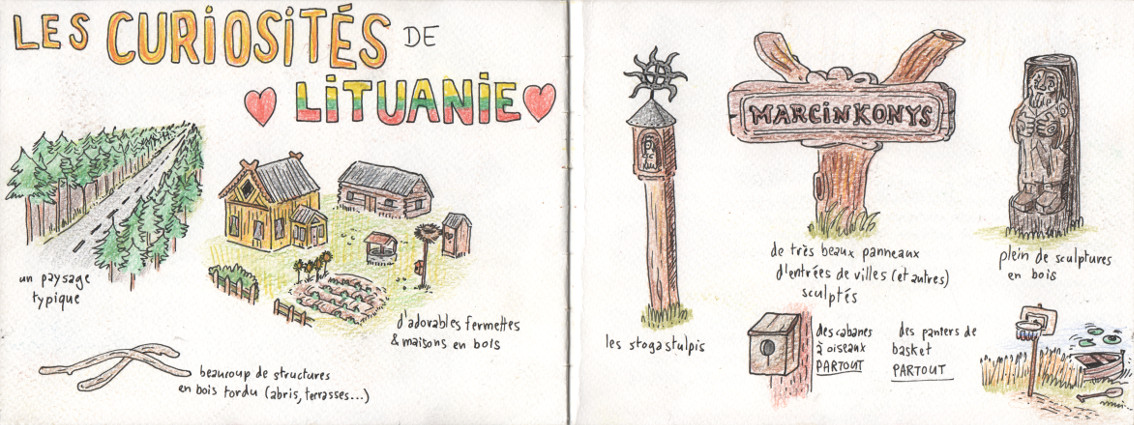 LES CURIOSITÉS DE
LITUANIE
un paysage
typique
d'adorables fermettes
& maisons en bois
beaucoup de structures
en bois tordu (abris, terrasses...)
les stogastulpis
MARCINKONYS
de très beaux panneaux
d'entrées de villes (et autres)
sculptés
plein de sculptures
en bois
des cabanes
à oiseaux
PARTOUT
des paniers de
basket
PARTOUT